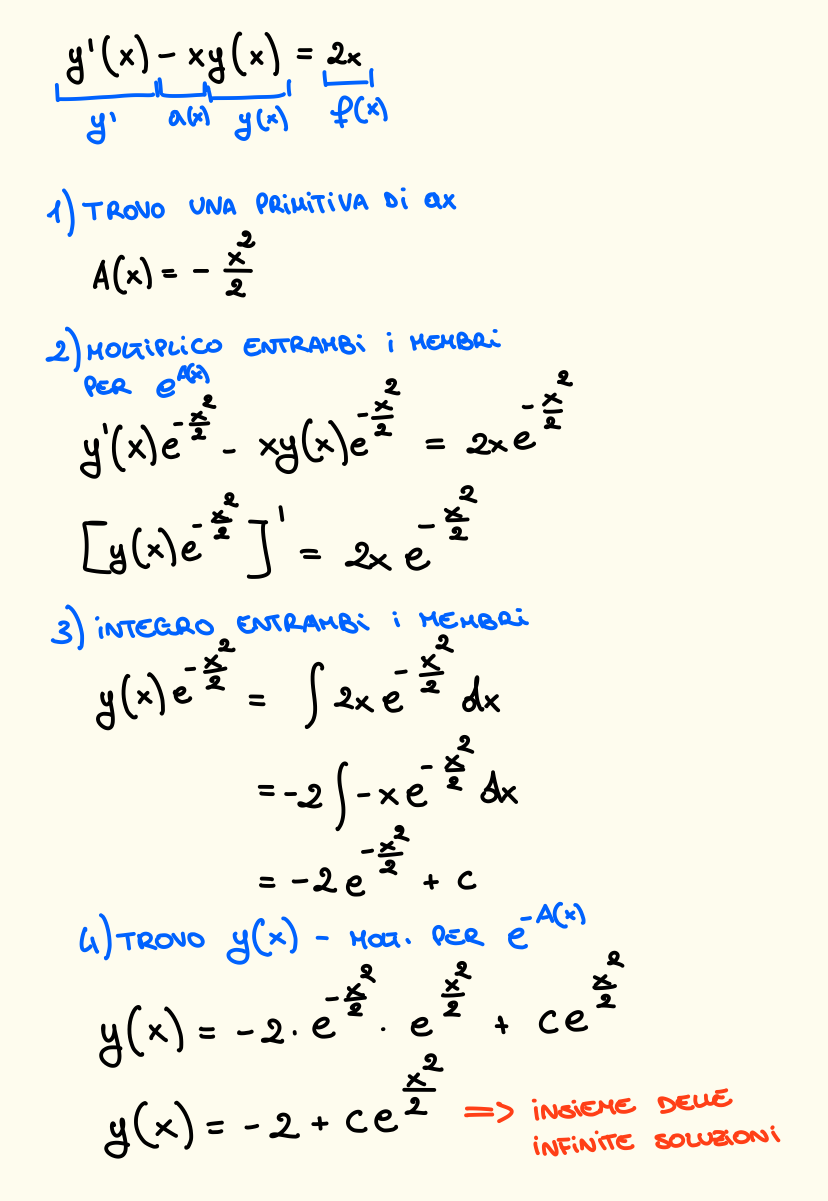 y'(x) - xy(x) = 2x
y' a(x) y(x) f(x)
1) TROVO UNA PRIMITIVA Di ax
A(x) = - x²/2
2) MOLTIPLICO ENTRAMBI i MEMBRI
PER e^A(x)
y'(x)e^(-x²/2) - xy(x)e^(-x²/2) = 2xe^(-x²/2)
[y(x)e^(-x²/2)]' = 2x e^(-x²/2)
3) INTEGRO ENTRAMBI i MEMBRI
y(x)e^(-x²/2) = ∫ 2x e^(-x²/2) dx
= -2 ∫ -x e^(-x²/2) dx
= -2e^(-x²/2) + c
4) TROVO y(x) - MOLT. PER e^(-A(x))
y(x) = -2 · e^(-x²/2) · e^(x²/2) + ce^(x²/2)
y(x) = -2 + ce^(x²/2) => INSIEME DELLE
INFINITE SOLUZIONI